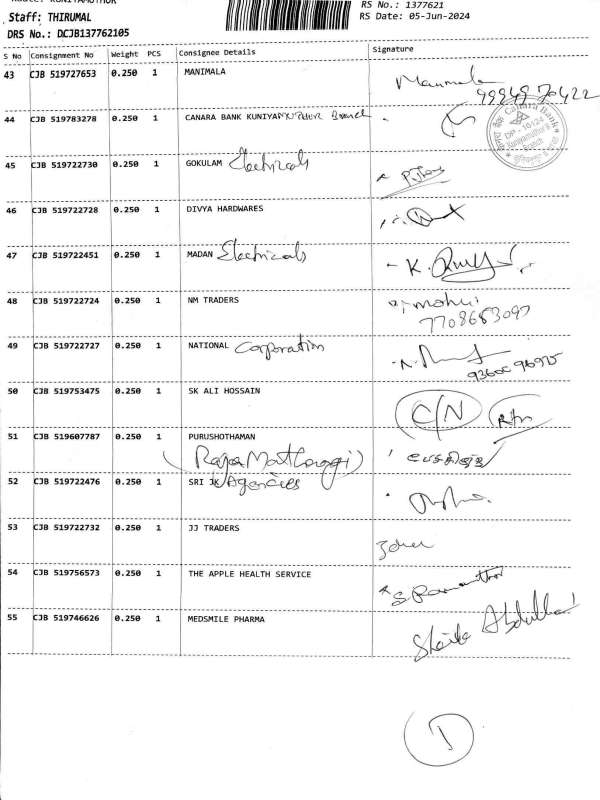 Route: KUNIYAMUTHUR
Staff: THIRUMAL
DRS No.: DCJB137762105
RS No.: 1377621
RS Date: 05-Jun-2024
S No Consignment No Weight PCS Consignee Details Signature
43 CJB 519727653 0.250 1 MANIMALA Manimala
99949 70422
44 CJB 519783278 0.250 1 CANARA BANK KUNIYAMUTHUR Branch
Canara Bank
DP - 10124
Branch
45 CJB 519722730 0.250 1 GOKULAM Electricals
46 CJB 519722728 0.250 1 DIVYA HARDWARES
47 CJB 519722451 0.250 1 MADAN Electricals K.
48 CJB 519722724 0.250 1 NM TRADERS
7708683097
49 CJB 519722727 0.250 1 NATIONAL Corporation
50 CJB 519753475 0.250 1 SK ALI HOSSAIN C/N Rtn
51 CJB 519607787 0.250 1 PURUSHOTHAMAN
(Raja Mathangi)
52 CJB 519722476 0.250 1 SRI JK Agencies
53 CJB 519722732 0.250 1 JJ TRADERS
54 CJB 519756573 0.250 1 THE APPLE HEALTH SERVICE
55 CJB 519746626 0.250 1 MEDSMILE PHARMA Abdullah